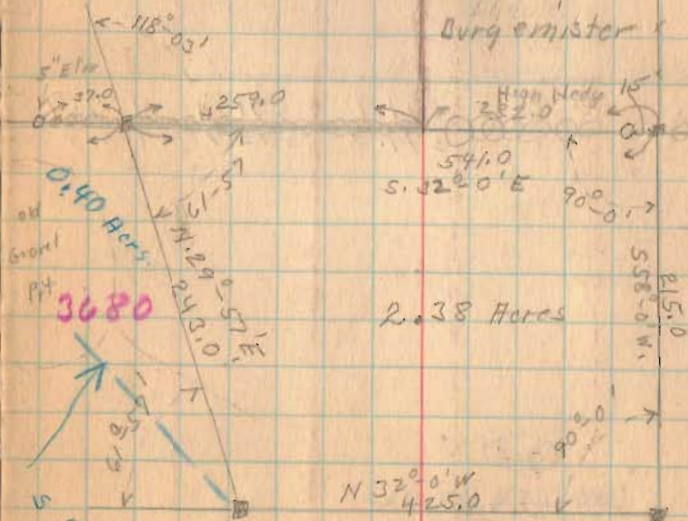 118°-03'
Burgemister
5" Elm
37.0
259.0
High Hedg
282.0
15"
541.0
S. 32°-0' E
90°-0'
61-57
0.40 Acrs.
old
Gravel
Pit
3680
N. 29°-57' E.
243.0
2.38 Acres
S58°-0'W.
215.0
90°-0'
N 32°-0' W
425.0
S